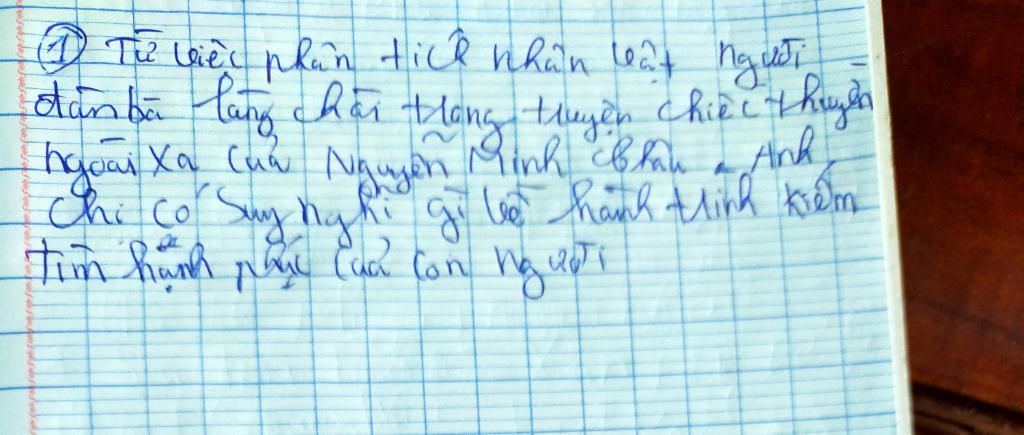 ① Từ việc phân tích nhân vật người
đàn bà làng chài trong truyện chiếc thuyền
ngoài xa của Nguyễn Minh Châu. Anh
chị có suy nghĩ gì về hành trình kiếm
tìm hạnh phúc của con người